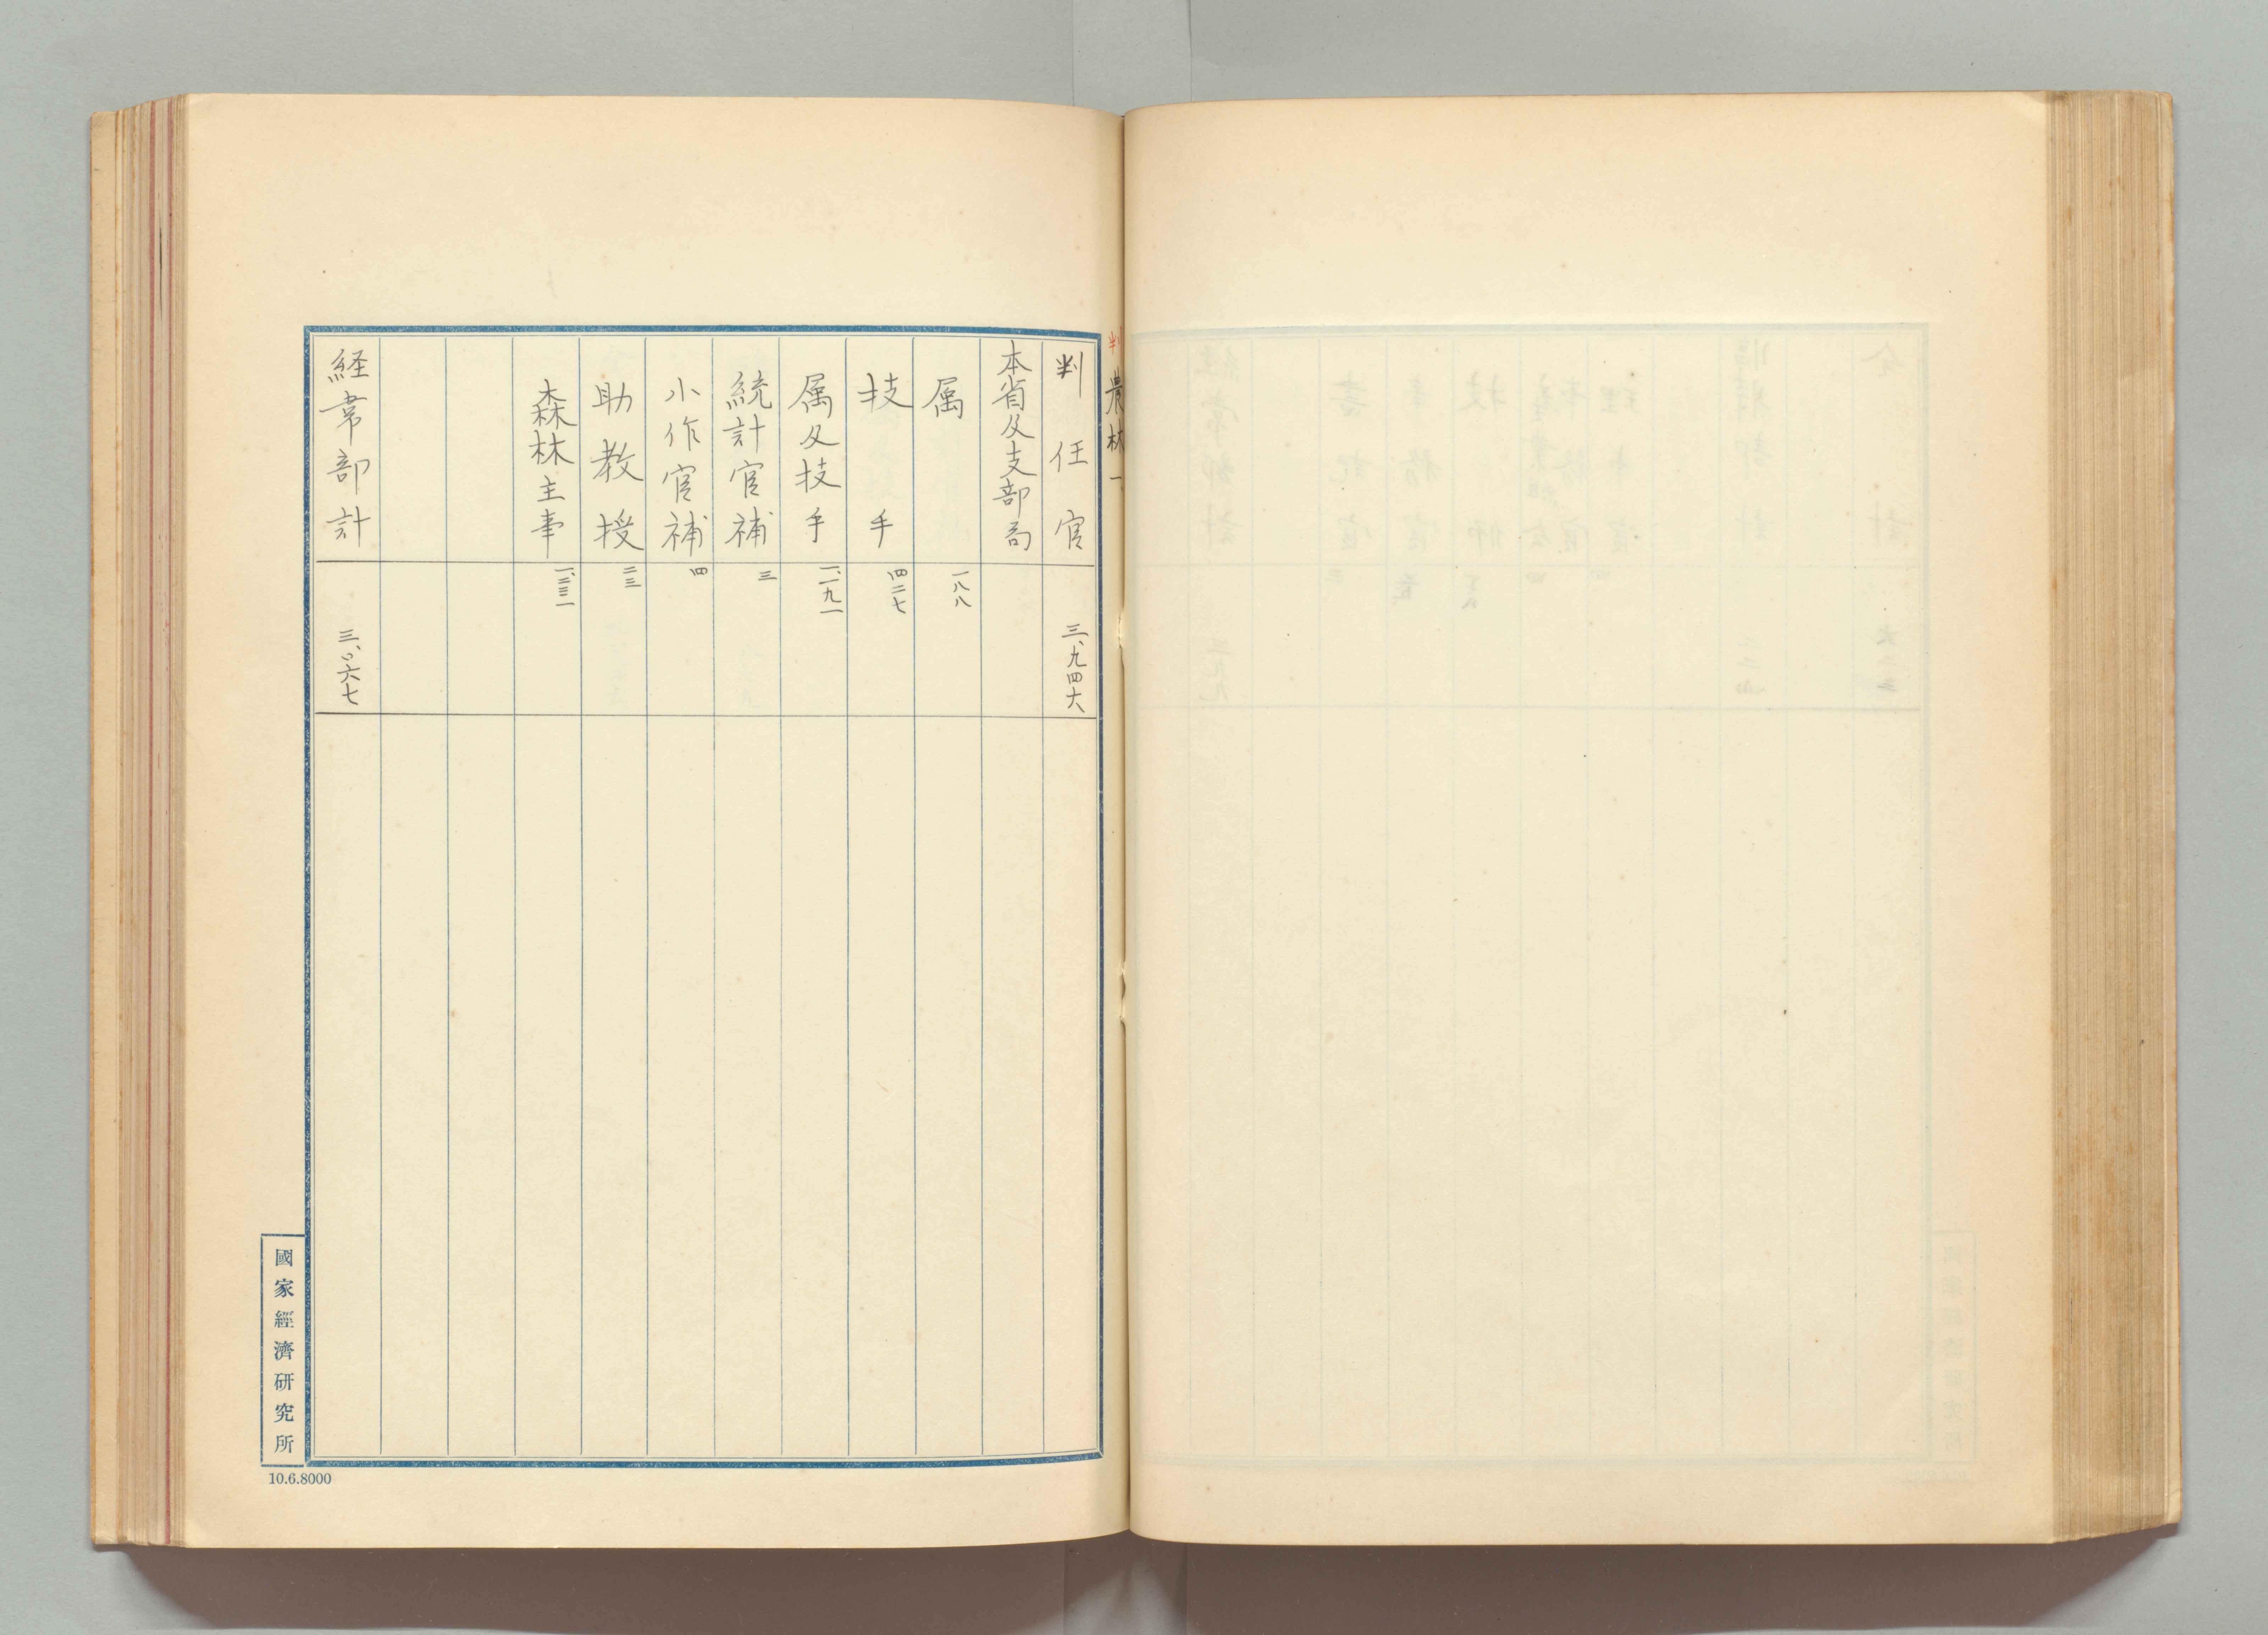 判 農林 一
判任官 三、九四六
本省及支部局
属 一八八
技手 四二七
属及技手 一、一九一
統計官補 三
小作官補 四
助教授 二三
森林主事 一、二三一
経常部計 三、〇六七
國家經濟研究所
10.6.8000